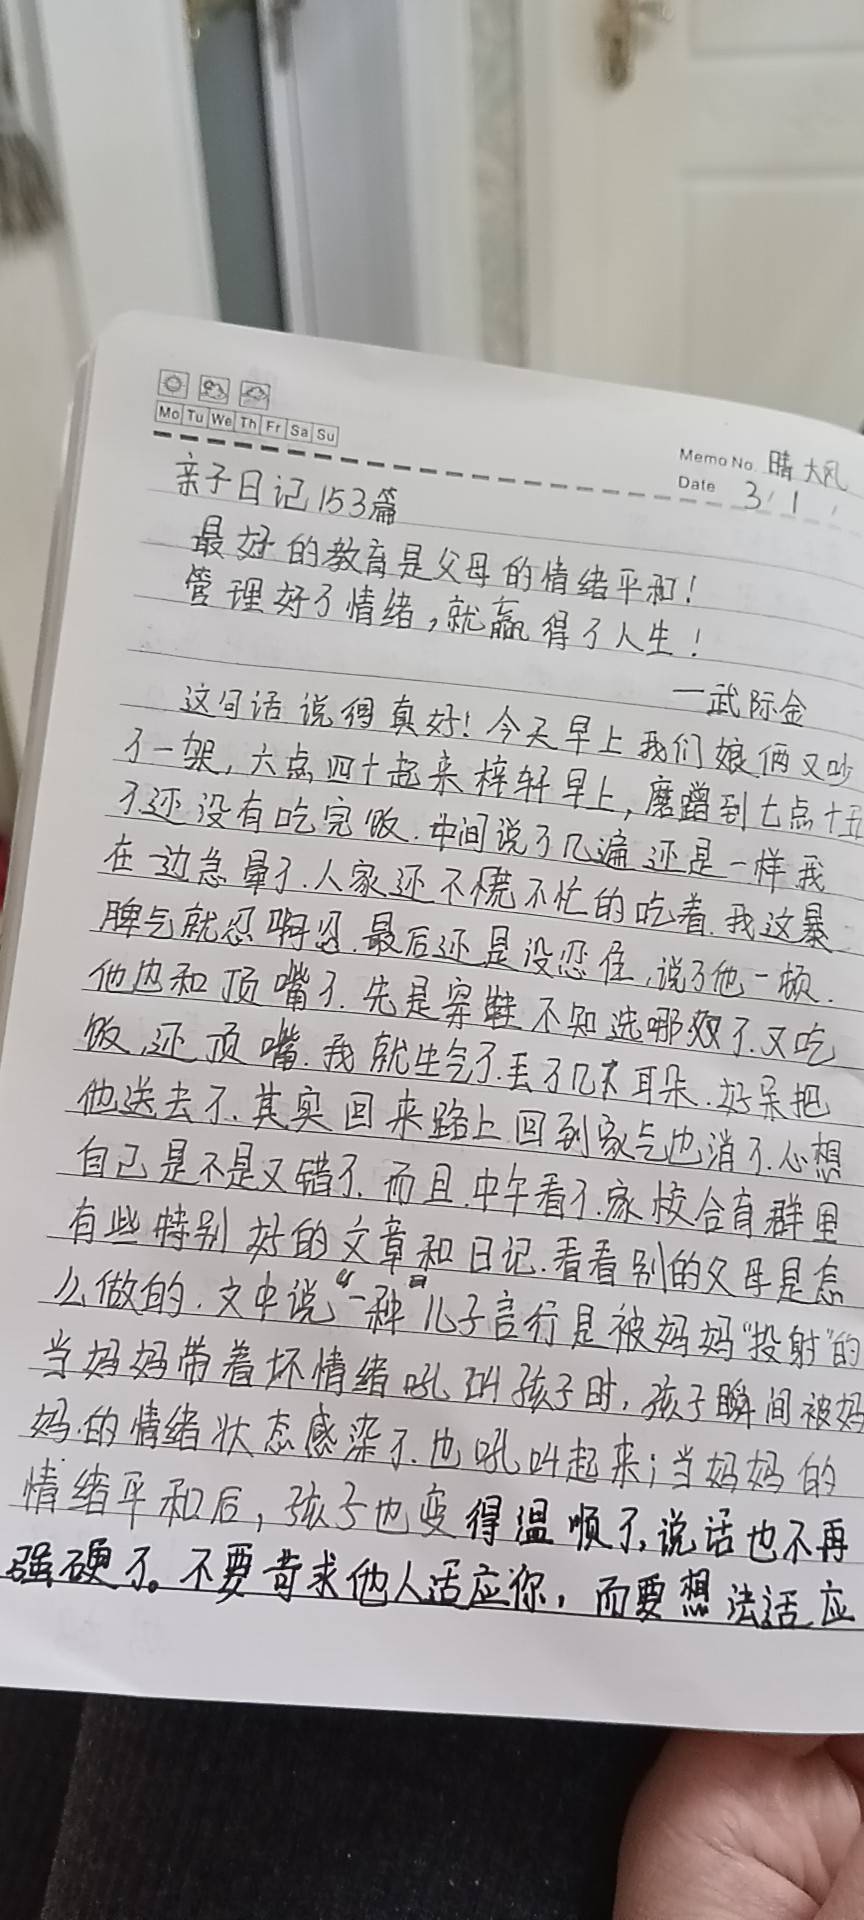 Mo Tu We Th Fr Sa Su
Memo No. 晴 大风
Date 3/1
亲子日记153篇
最好的教育是父母的情绪平和!
管理好了情绪,就赢得了人生!
一武际金
这句话说得真好!今天早上我们娘俩又吵
了一架,六点四十起来梓轩早上,磨蹭到七点十五
了还没有吃完饭.中间说了几遍还是一样我
在一边急晕了.人家还不慌不忙的吃着.我这暴
脾气就忍啊忍.最后还是没忍住,说了他一顿.
他也和顶嘴了.先是穿鞋不知选哪双了.又吃
饭,还顶嘴.我就生气了.丢了几次耳朵.好呆把
他送去了.其实回来路上回到家气也消了.心想
自己是不是又错了.而且.中午看了.家校合育群里
有些特别好的文章和日记.看看别的父母是怎
么做的.文中说“一种”儿子言行是被妈妈“投射”的
当妈妈带着坏情绪吼叫孩子时,孩子瞬间被妈
妈的情绪状态感染了.也吼叫起来;当妈妈的
情绪平和后,孩子也变得温顺了,说话也不再
强硬了。不要苛求他人适应你,而要想法适应